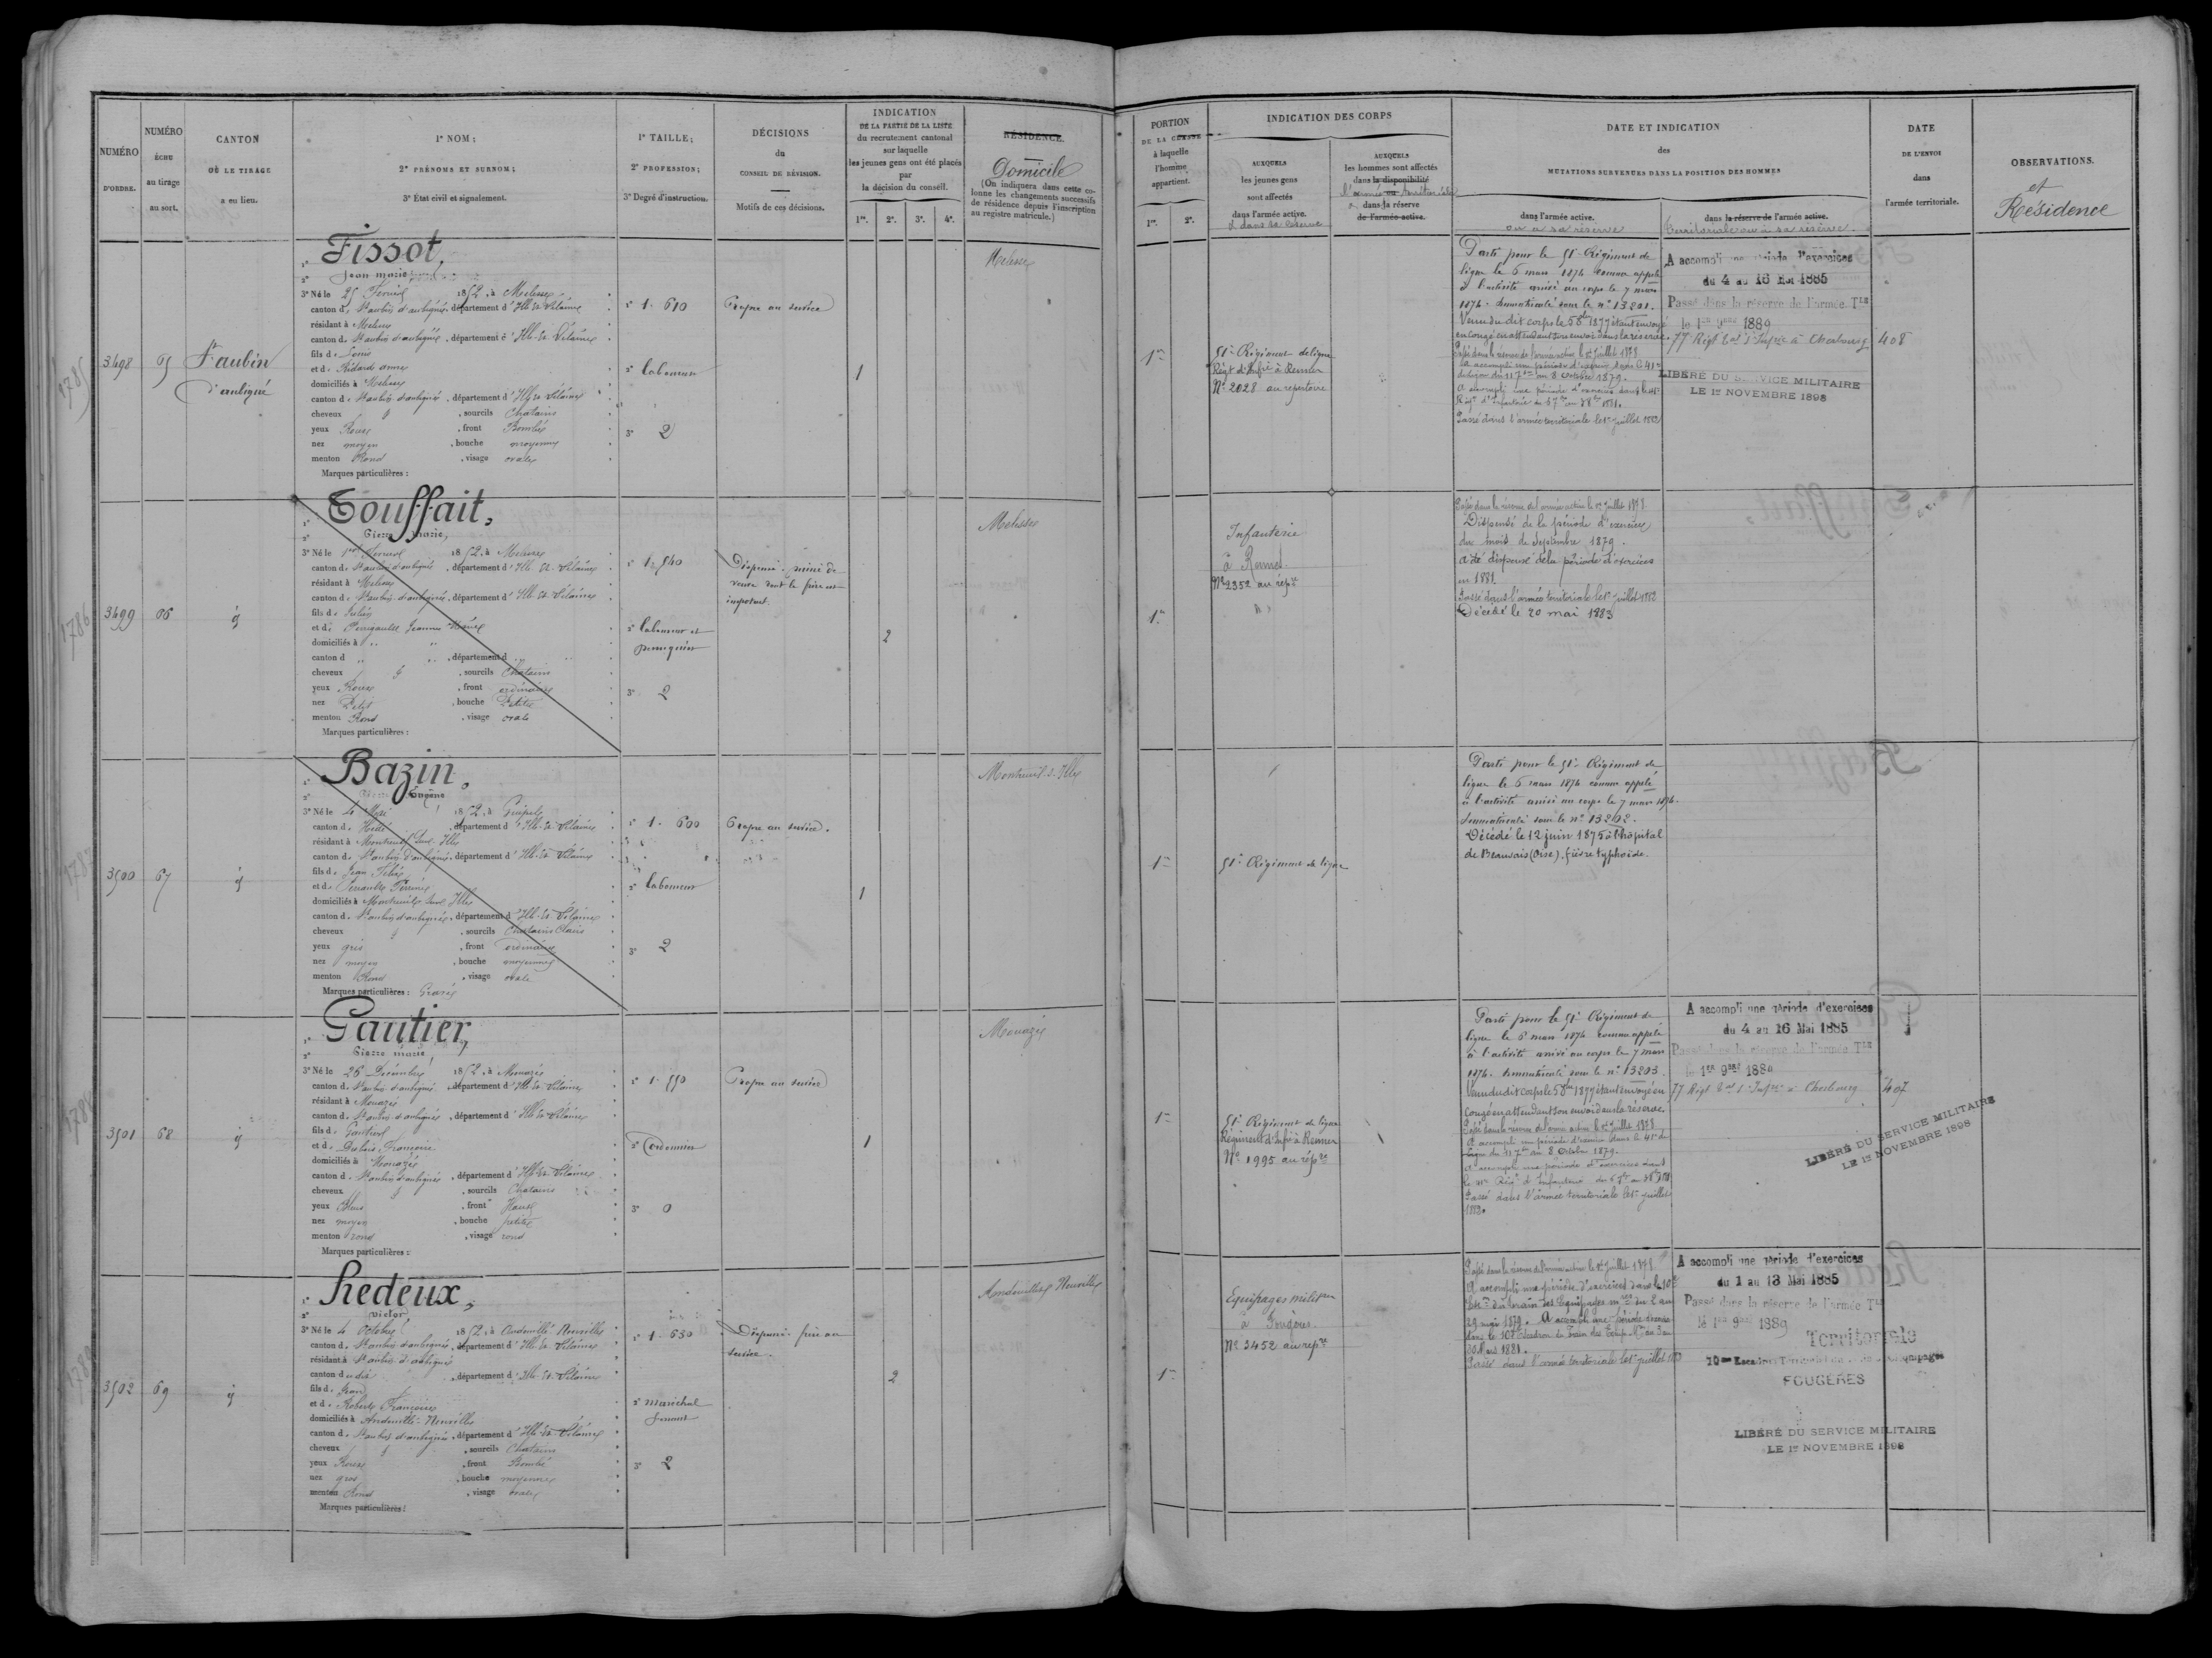 NUMÉRO
D'ORDRE.
NUMÉRO
ÉCHU
au tirage
au sort.
CANTON
OÙ LE TIRAGE
a eu lieu.
1º NOM;
2º PRÉNOMS ET SURNOM;
3º État civil et signalement.
1º TAILLE;
2º PROFESSION;
3º Degré d'instruction.
DÉCISIONS
du
CONSEIL DE RÉVISION.
Motifs de ces décisions.
INDICATION
DE LA PARTIE DE LA LISTE
du recrutement cantonal
sur laquelle
les jeunes gens ont été placés
par
la décision du conseil.
1re. 2e. 3e. 4e.
RÉSIDENCE.
Domicile
(On indiquera dans cette co-
lonne les changements successifs
de résidence depuis l'inscription
au registre matricule.)
1785
3498
65
St aubin
d'aubigné
Tissot,
Jean marie
3º Né le 25 Février 1852, à Melesse
canton de St aubin d'aubigné, département d'Ille-et-Vilaine
résidant à Melesse
canton de St aubin d'aubigné, département d'Ille-et-Vilaine
fils de Louis
et de Ridard anne
domiciliés à Melesse
canton de St aubin d'aubigné, département d'Ille-et-Vilaine
cheveux & , sourcils Chatains
yeux Roux , front Bombé
nez moyen , bouche moyenne
menton Rond , visage ovale
Marques particulières :
1º 1. 610
2º laboureur
3º 2
Propre au service
1
Melesse
1786
3499
66
Touffait,
Pierre marie,
3º Né le 1er Février 1852, à Melesse
canton de St aubin d'aubigné, département d'Ille-et-Vilaine
résidant à Melesse
canton de St aubin d'aubigné, département d'Ille-et-Vilaine
fils de Julien
et de Jeanne
domiciliés à " "
canton d " " , département d " "
cheveux & , sourcils Chatains
yeux Roux , front ordinaire
nez Petit , bouche Petite
menton Rond , visage ovale
Marques particulières :
1º 1. 540
2º laboureur et
perruquier
3º 2
Dispensé. puiné de
veuve dont le frère est
impotent.
2
Melesse
1787
3500
67
Bazin,
Pierre Eugène
3º Né le 4 Mai 1852, à Guipel
canton de Hédé, département d'Ille-et-Vilaine
résidant à Montreuil sur Ille
canton de St aubin d'aubigné, département d'Ille-et-Vilaine
fils de Jean Félix
et de Perrault Perrine
domiciliés à Montreuil sur Ille
canton de St aubin d'aubigné, département d'Ille-et-Vilaine
cheveux & , sourcils Chatains Clairs
yeux gris , front ordinaire
nez moyen , bouche moyenne
menton Rond , visage ovale
Marques particulières : Gravé
1º 1. 600
2º laboureur
3º 2
Propre au service.
1
Montreuil-s-Ille
1788
3501
68
Gautier,
Pierre marie,
3º Né le 26 Décembre 1852, à Mouazé
canton de St aubin d'aubigné, département d'Ille-et-Vilaine
résidant à Mouazé
canton de St aubin d'aubigné, département d'Ille-et-Vilaine
fils de Gautier
et de Françoise
domiciliés à Mouazé
canton de St aubin d'aubigné, département d'Ille-et-Vilaine
cheveux & , sourcils Chatains
yeux Bleus , front Haut
nez moyen , bouche petite
menton rond , visage rond
Marques particulières :
1º 1. 550
2º Cordonnier
3º 0
Propre au service
1
Mouazé
1789
3502
69
Ledeux,
Victor
3º Né le 4 Octobre 1852, à Andouillé-Neuville
canton de St aubin d'aubigné, département d'Ille-et-Vilaine
résidant à St aubin d'aubigné
canton du dit , département d'Ille-et-Vilaine
fils de Jean
et de Robert Françoise
domiciliés à Andouillé-Neuville
canton de St aubin d'aubigné, département d'Ille-et-Vilaine
cheveux & , sourcils Chatains
yeux Roux , front Bombé
nez gros , bouche moyenne
menton Rond , visage ovale
Marques particulières :
1º 1. 630
2º maréchal
ferrant
3º 2
Dispensé. frère au
service.
2
Andouillé-Neuville
PORTION
DE LA CLASSE
à laquelle
l'homme
appartient.
1re. 2e.
INDICATION DES CORPS
AUXQUELS
les jeunes gens
sont affectés
dans l'armée active.
et dans sa réserve
AUXQUELS
les hommes sont affectés
dans la disponibilité
l'armée territoriale
dans la réserve
de l'armée active.
DATE ET INDICATION
des
MUTATIONS SURVENUES DANS LA POSITION DES HOMMES
dans l'armée active.
ou sa réserve
dans la réserve de l'armée active.
territoriale ou à sa réserve.
DATE
DE L'ENVOI
dans
l'armée territoriale.
OBSERVATIONS.
et
Résidence
1re
51e Régiment de ligne
Régt d'Infie à Rennes
Nº 2028 au répertoire
Parti pour le 51e Régiment de
ligne le 6 mars 1874 comme appelé
à l'activité arrivé au corps le 7 mars
1874. Immatriculé sous le nº 13201.
Venu du dit corps le 5 8bre 1877 étant envoyé
en congé en attendant son envoi dans la réserve.
Passé dans la réserve de l'armée active le 1er Juillet 1878
A accompli une période d'exercices dans le 41e
de ligne du 11 7bre au 8 Octobre 1879.
A accompli une période d'exercices dans le 41e
Régt d'Infanterie du 6 7bre au 3 8bre 1881.
Passé dans l'armée territoriale le 1er juillet 1882
A accompli une période d'exercices
du 4 au 16 Mai 1885
Passé dans la réserve de l'armée Tle
le 1er 9bre 1889
77 Régt Tal d'Infie à Cherbourg
408
LIBÉRÉ DU SERVICE MILITAIRE
LE 1er NOVEMBRE 1898
1re
Infanterie
à Rennes
Nº 2352 au répre
Passé dans la réserve de l'armée active le 1er Juillet 1878
Dispensé de la période d'exercices
du mois de Septembre 1879.
a été dispensé de la période d'exercices
en 1881.
Passé dans l'armée territoriale le 1er juillet 1882
Décédé le 20 mai 1883
1re
51e Régiment de ligne
Parti pour le 51e Régiment de
ligne le 6 mars 1874 comme appelé
à l'activité arrivé au corps le 7 mars 1874.
Immatriculé sous le nº 13202.
Décédé le 12 juin 1875 à l'hôpital
de Beauvais (Oise), fièvre typhoïde.
1re
51e Régiment de ligne
Régiment d'Infie à Rennes
Nº 1995 au répre
Parti pour le 51e Régiment de
ligne le 6 mars 1874 comme appelé
à l'activité arrivé au corps le 7 mars
1874. Immatriculé sous le nº 13203.
Venu du dit corps le 5 8bre 1877 étant envoyé en
congé en attendant son envoi dans la réserve.
Passé dans la réserve de l'armée active le 1er Juillet 1878
A accompli une période d'exercices dans le 41e de
ligne du 11 7bre au 8 Octobre 1879.
A accompli une période d'exercices dans
le 41e Régt d'Infanterie du 6 7bre au 3 8bre 1881
Passé dans l'armée territoriale le 1er juillet
1882.
A accompli une période d'exercices
du 4 au 16 Mai 1885
Passé dans la réserve de l'armée Tle
le 1er 9bre 1889
77 Régt Tal d'Infie à Cherbourg
407
LIBÉRÉ DU SERVICE MILITAIRE
LE 1er NOVEMBRE 1898
1re
Equipages militres
à Fougères
Nº 3452 au répre
Passé dans la réserve de l'armée active le 1er Juillet 1878
A accompli une période d'exercices dans le 10e
du train des Equipages mres du 2 au
29 1879. A accompli une période d'exercices
dans le 10e Escadron du Train des Equip. Mres du 3 au
30 Mars 1881.
Passé dans l'armée territoriale le 1er juillet
A accompli une période d'exercices
du 1 au 13 Mai 1885
Passé dans la réserve de l'armée Tle
le 1er 9bre 1889
Territoriale
10me Escadron Territorial du Train des Equipages
FOUGÈRES
LIBÉRÉ DU SERVICE MILITAIRE
LE 1er NOVEMBRE 1898